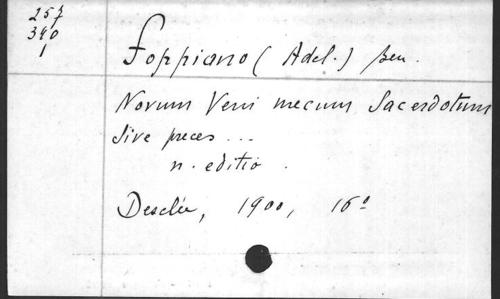 257
340
1
Foppiano (Adel.) sen.
Novum Veni mecum Sacerdotum
sive preces ...
n. editio.
Desclée, 1900, 16º